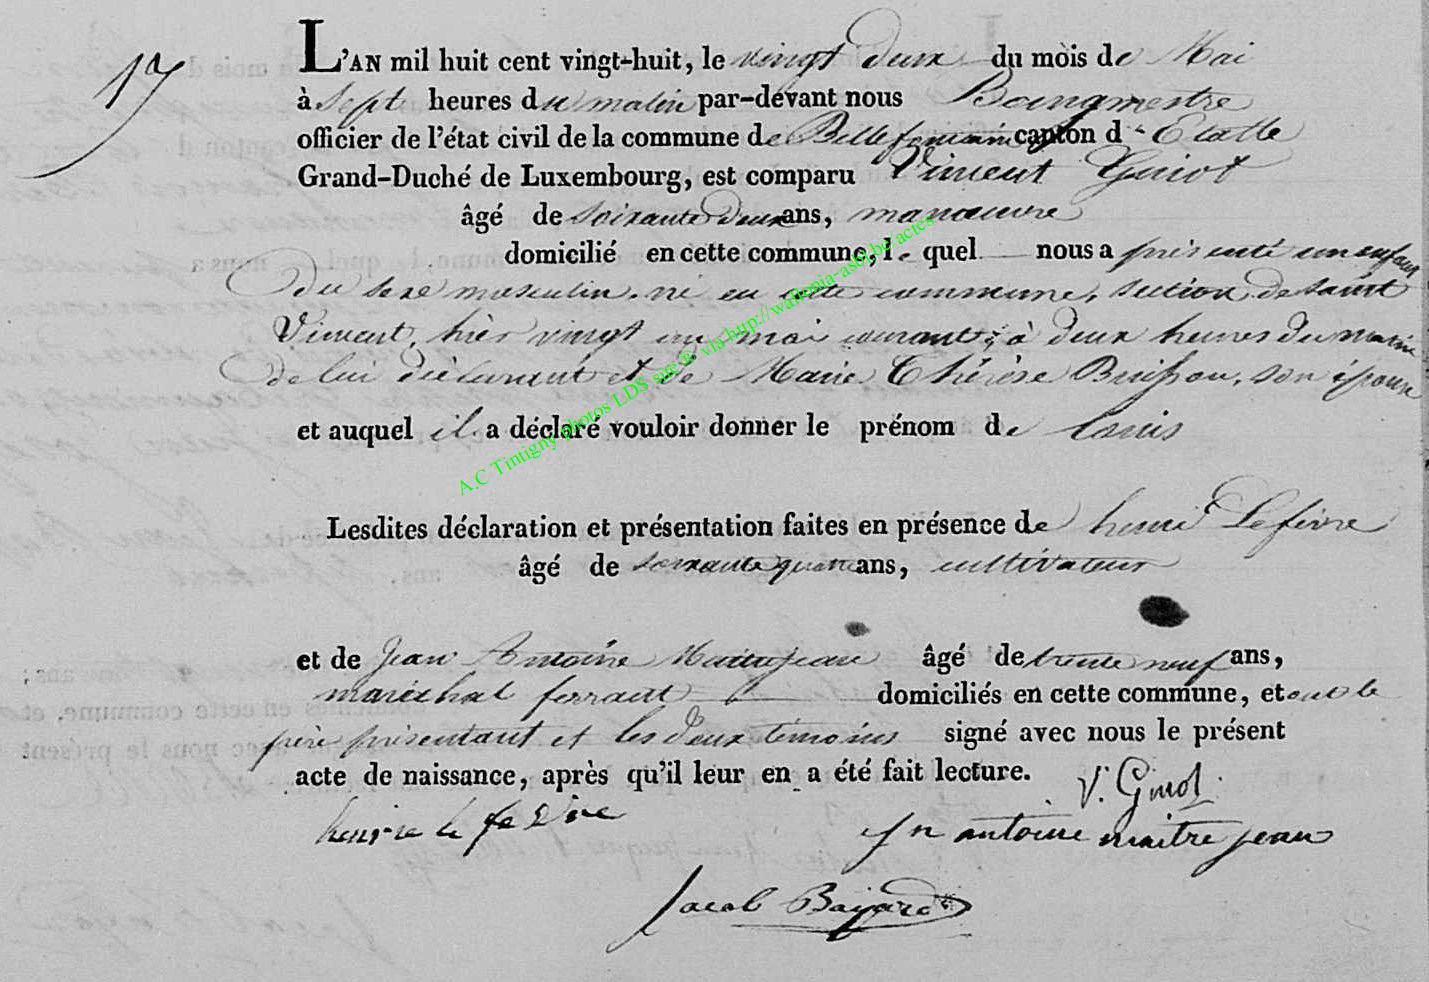 17
L'AN mil huit cent vingt-huit, le vingt deux du mois de Mai
à sept heures du matin par-devant nous Bourgmestre
officier de l'état civil de la commune de Bellefontaine canton d'Etalle
Grand-Duché de Luxembourg, est comparu Vincent Guiot
âgé de soixante deux ans, manœuvre
domicilié en cette commune, le quel nous a présenté un enfant
du sexe masculin, né en cette commune, section de saint
Vincent, hier vingt un mai courant, à deux heures du matin
de lui déclarant et de Marie Thérèse Buisson, son épouse
et auquel il a déclaré vouloir donner le prénom de Louis
Lesdites déclaration et présentation faites en présence de henri Lefèvre
âgé de soixante quatre ans, cultivateur
et de Jean Antoine Maitrejean âgé de trente neuf ans,
maréchal ferrant domiciliés en cette commune, et ont le
père présentant et les deux témoins signé avec nous le présent
acte de naissance, après qu'il leur en a été fait lecture.
V. Guiot
henrie le feVre
jn antoine maitrejean
Jacob Bajard
A.C Tintigny photos LDS sage @ via http://wallonia-asbl.be/actes